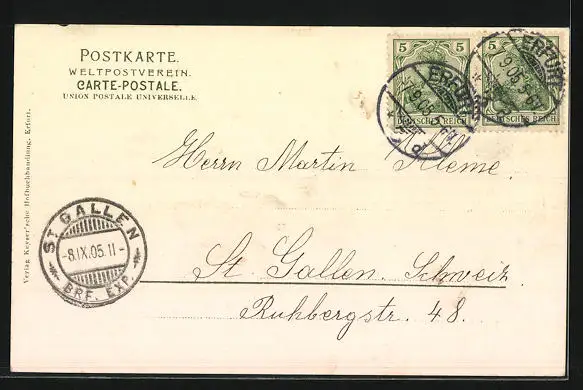 POSTKARTE.
WELTPOSTVEREIN.
CARTE-POSTALE.
UNION POSTALE UNIVERSELLE.
5 5
5 5
DEUTSCHES REICH
DEUTSCHES REICH
ERFURT
9.05. 5-6
ERFURT
9.05. 5-6
Herrn Martin Kleme.
St. Gallen. Schweiz.
Ruhbergstr. 48.
ST. GALLEN
-8.IX.05.11-
BRF. EXP.
Verlag Keyser'sche Hofbuchhandlung, Erfurt.